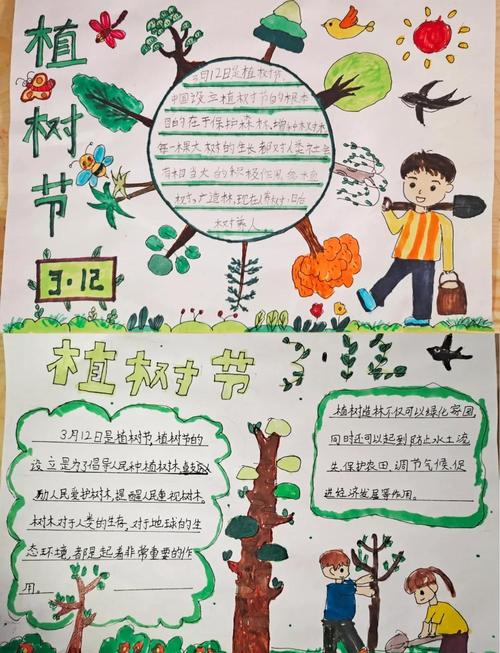 植树节
3·12
3月12日是植树节,
中国设立植树节的根本
目的在于保护森林,增
每一棵大树的生长都对人类社会
有相当大的积极作用
树人
植树节 3·12
3月12日是植树节,植树节的
设立是为了倡导人民种植树木,鼓
励人民爱护树木,提醒人民重视树木。
树木对于人类的生存,对于地球的生
态环境,都是起着非常重要的作
用。
植树造林不仅可以绿化家园,
同时还可以起到防止水土流
失、保护农田、调节气候、促
进经济发展等作用。